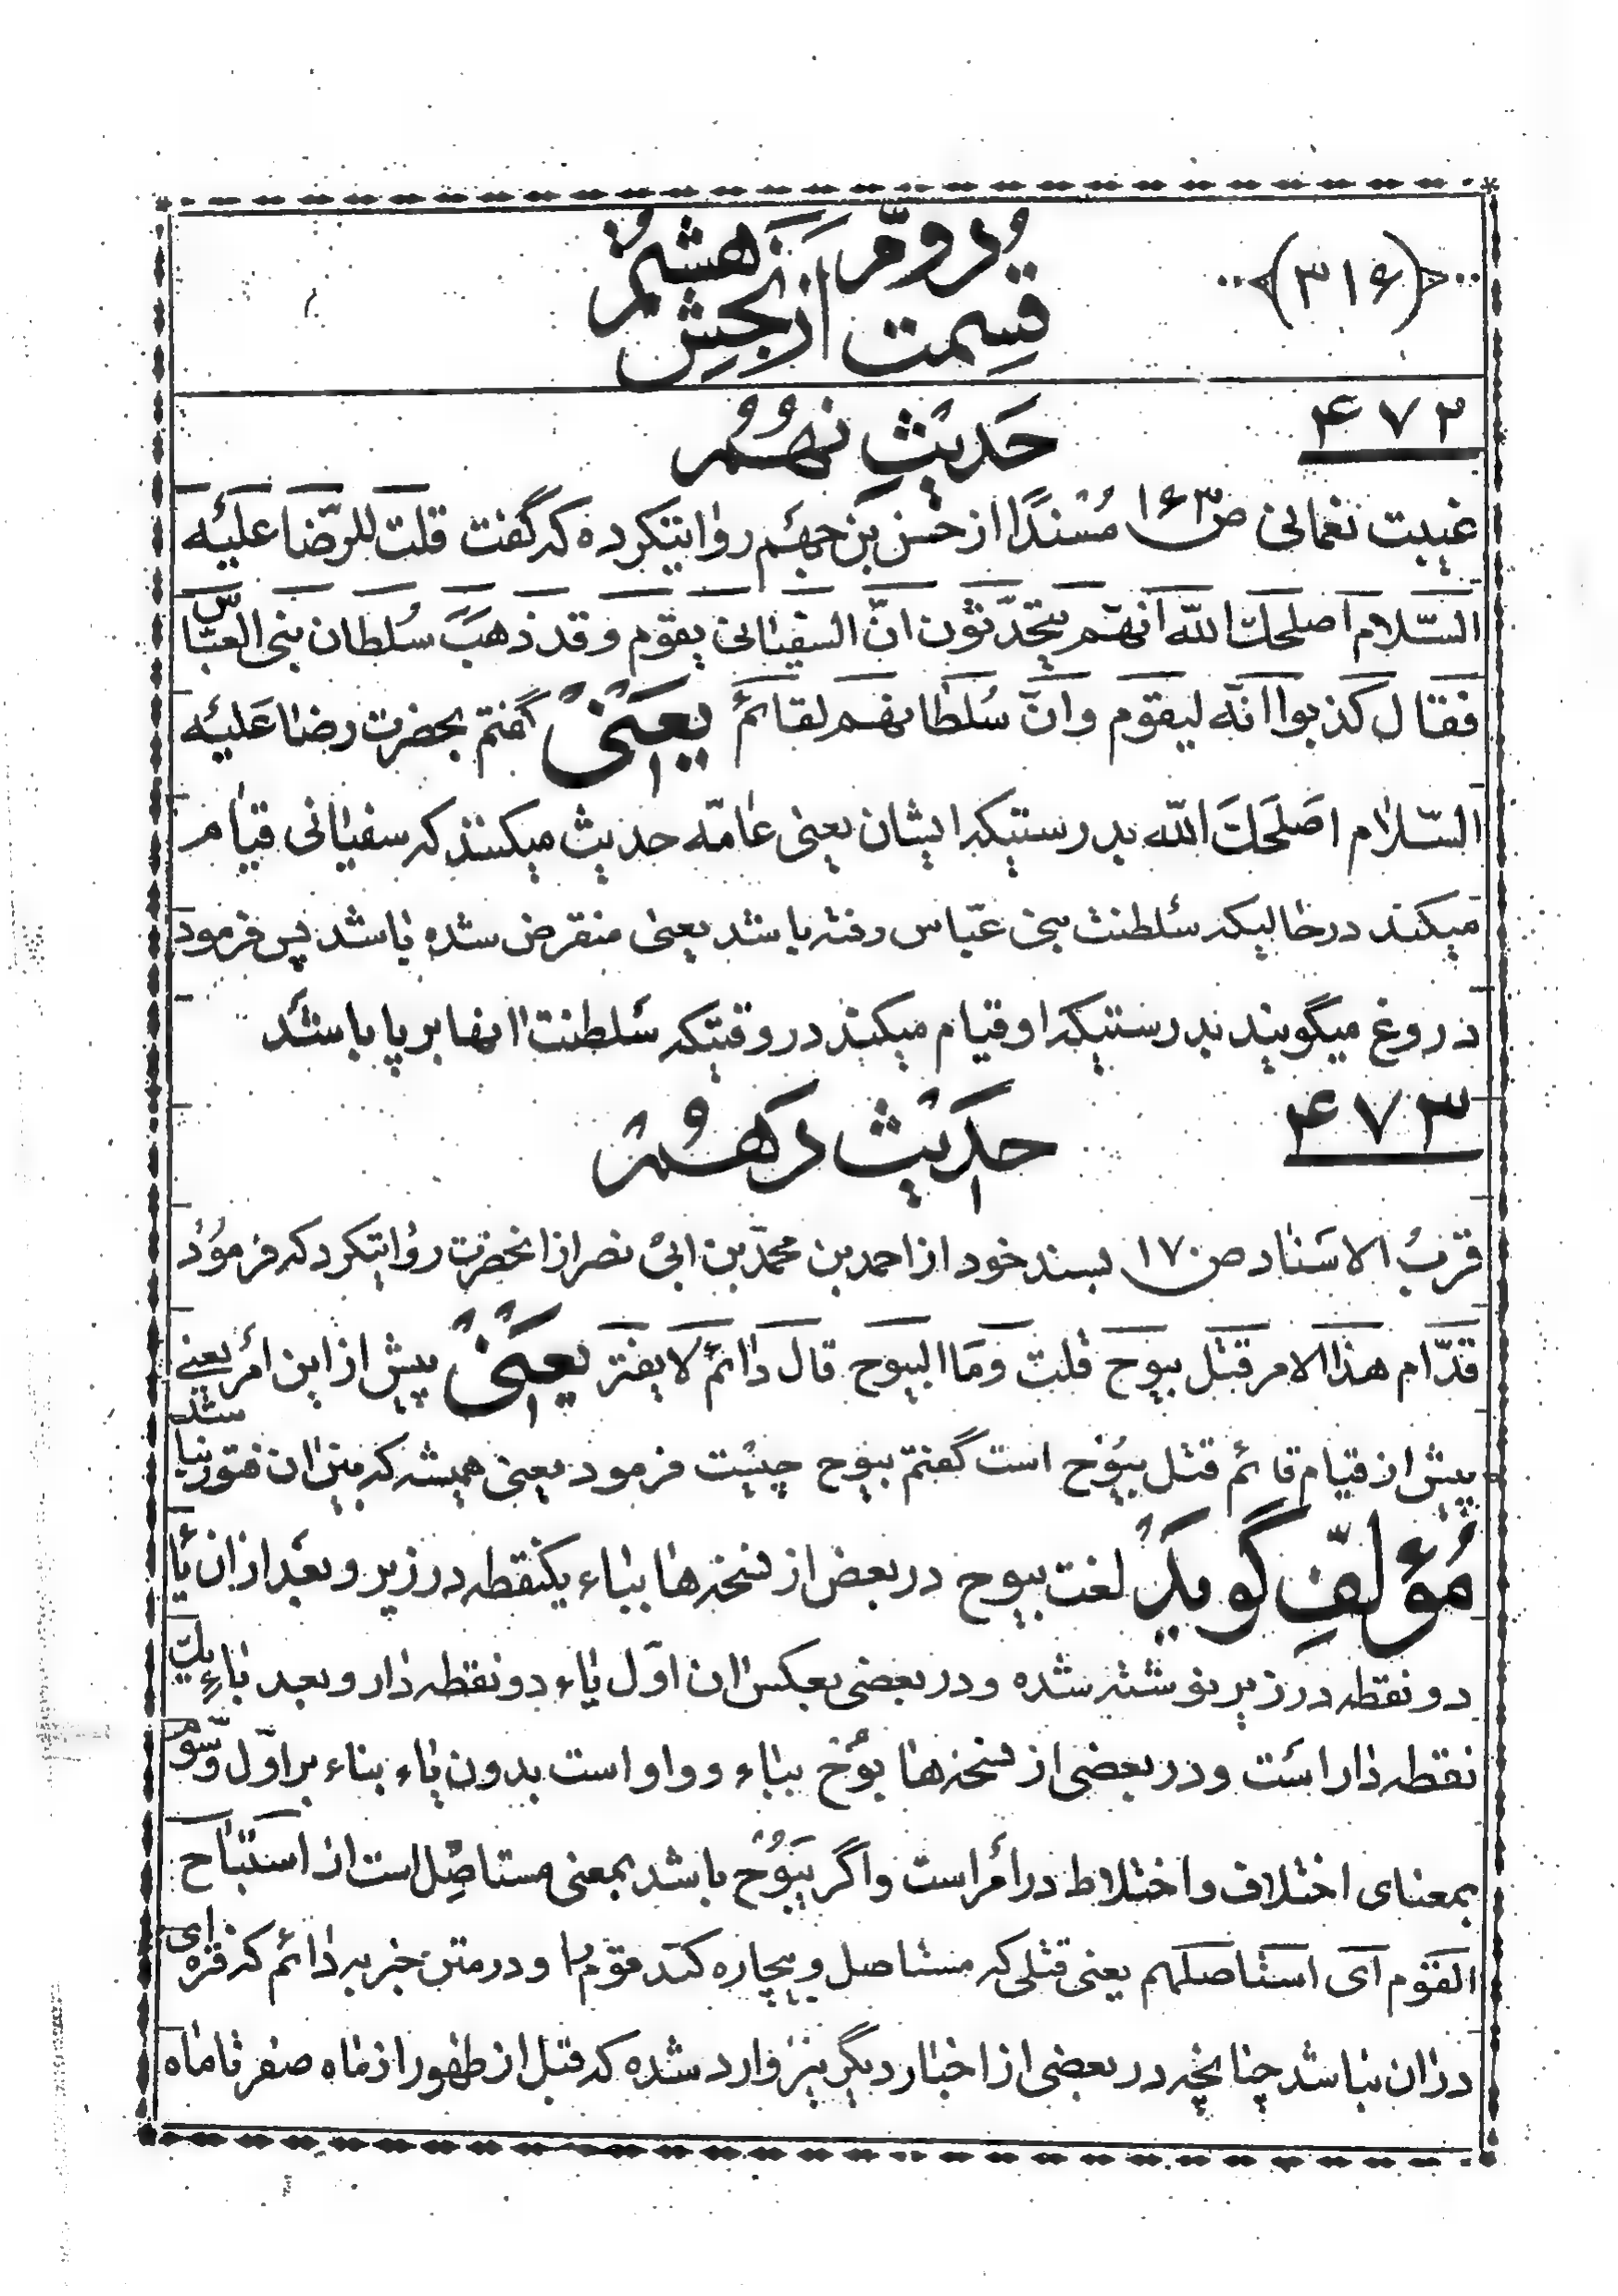 (۳۱۶)
قسمت دوّم از بخش هشتم
۴۷۲
حَدیثِ نهُمُ
غیبت نعمانی ص۱۶۳ مُسْنَدًا از حسن بن جهم روایتکرده که گفت قلت للرّضا علیه
السّلام اصلحک الله انهم یتحدّثون انّ السفیانی یقوم و قد ذهب سُلطان بنی العبّاس
فقال کذبوا انّه لیقوم وانّ سُلطانهم لقائم یَعنی گفتم بحضرت رضا علیه
السّلام اصلحک الله بدرستیکه ایشان یعنی عامّه حدیث میکنند که سفیانی قیام
میکند درحالیکه سلطنت بنی عبّاس رفته باشد یعنی منقرض شده باشد پس فرمود
دروغ میگویند بدرستیکه او قیام میکند در وقتیکه سلطنت انها برپا باشد
۴۷۳
حدیث دَهُمُ
قربُ الاسناد ص۱۷۰ بسند خود از احمد بن محمّد بن ابی نصر از انحضرت روایتکرد که فرمود
قدّام هذا الامر قتل بیوح قلت وما البیوح قال دائم لا یفتر یَعنی پیش از این امر یعنی
پیش از قیام قائم قتل بیُوح است گفتم بیوح چیست فرمود یعنی همیشه که بین ان فتور نباشد
مُؤلّفِ گوید لغت بیوح در بعض از نسخه‌ها بباء یکنقطه در زیر و بعد از ان یا
دو نقطه در زیر نوشته شده و در بعضی بعکس ان اوّل یاء دو نقطه دار و بعد باءِ یک
نقطه دار است و در بعضی از نسخه‌ها بُوح بباء و واو است بدون یاء بناء بر اوّل و سوّم
بمعنای اختلاف و اختلاط در امر است و اگر یَبُوُح باشد بمعنی مستاصِل است از استباح
القوم ای استاصلهم یعنی قتلی که مستاصل و بیچاره کند قوم را و در متن خبر به دائم که فتره ای
در ان نباشد چنانچه در بعضی از اخبار دیگر نیز وارد شده که قبل از ظهور از ماه صفر تا ماه